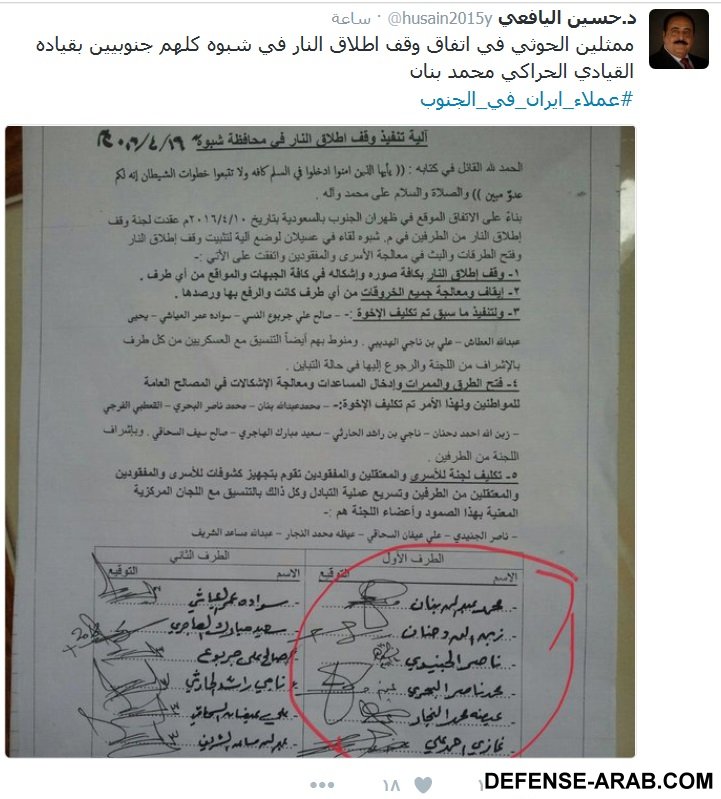 د.حسين اليافعي @husain2015y · ساعة
ممثلين الحوثي في اتفاق وقف اطلاق النار في شبوه كلهم جنوبيين بقياده
القيادي الحراكي محمد بنان
#عملاء_ايران_في_الجنوب
آلية تنفيذ وقف اطلاق النار في محافظة شبوة
الحمد لله القائل في كتابه : (( يأيها الذين امنوا ادخلوا في السلم كافه ولا تتبعوا خطوات الشيطان إنه لكم
عدوٌ مبين )) والصلاة والسلام على محمد وآله .
بناءً على الاتفاق الموقع في ظهران الجنوب بالسعودية بتاريخ ٢٠١٦/٤/١٠م عقدت لجنة وقف
إطلاق النار من الطرفين في م. شبوه لقاء في عسيلان لوضع آلية لتثبيت وقف إطلاق النار
وفتح الطرقات والبث في معالجة الأسرى والمفقودين واتفقت على الآتي :-
١- وقف إطلاق النار بكافة صوره وإشكاله في كافة الجبهات والمواقع من أي طرف .
٢- إيقاف ومعالجة جميع الخروقات من أي طرف كانت والرفع بها ورصدها .
٣- ولتنفيذ ما سبق تم تكليف الإخوة :- – صالح علي جربوع النسي – سواده عمر العياشي – يحيى
عبدالله العطاش – علي بن ناجي الهديبي . ومنوط بهم أيضاً التنسيق مع العسكريين من كل طرف
بالإشراف من اللجنة والرجوع إليها في حالة التباين .
٤- فتح الطرق والممرات وإدخال المساعدات ومعالجة الإشكالات في المصالح العامة
للمواطنين ولهذا الأمر تم تكليف الإخوة:- – محمدعبدالله بنان – محمد ناصر البحري – القعطبي الفرجي
– زين الله احمد دحنان – ناجي بن راشد الحارثي – سعيد مبارك الهاجري – صالح سيف السحاقي . وبإشراف
اللجنة من الطرفين .
٥- تكليف لجنة للأسرى والمعتقلين والمفقودين تقوم بتجهيز كشوفات للأسرى والمفقودين
والمعتقلين من الطرفين وتسريع عملية التبادل وكل ذالك بالتنسيق مع اللجان المركزية
المعنية بهذا الصمود وأعضاء اللجنة هم :-
– ناصر الجنيدي – علي عيفان السحاقي – عيظه محمد النجار – عبدالله مساعد الشريف
الطرف الأول الطرف الثاني
الاسم التوقيع الاسم التوقيع
- محمد عبدالله بنان - سواده عمر العياشي
- زين الله دحنان - سعيد مبارك الهاجري
- ناصر الجنيدي - صالح علي جربوع
- محمد ناصر البحري - ناجي راشد الحارثي
- عيضه محمد النجار - علي عيفان السحاقي
- غازي احمد علي - عبدالله مساعد الشريف
١٨
DEFENSE-ARAB.COM